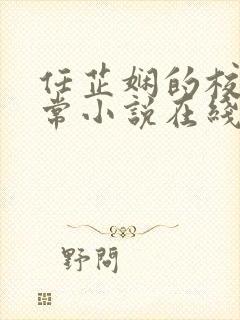 任芷娴的校
常小说在线
野问